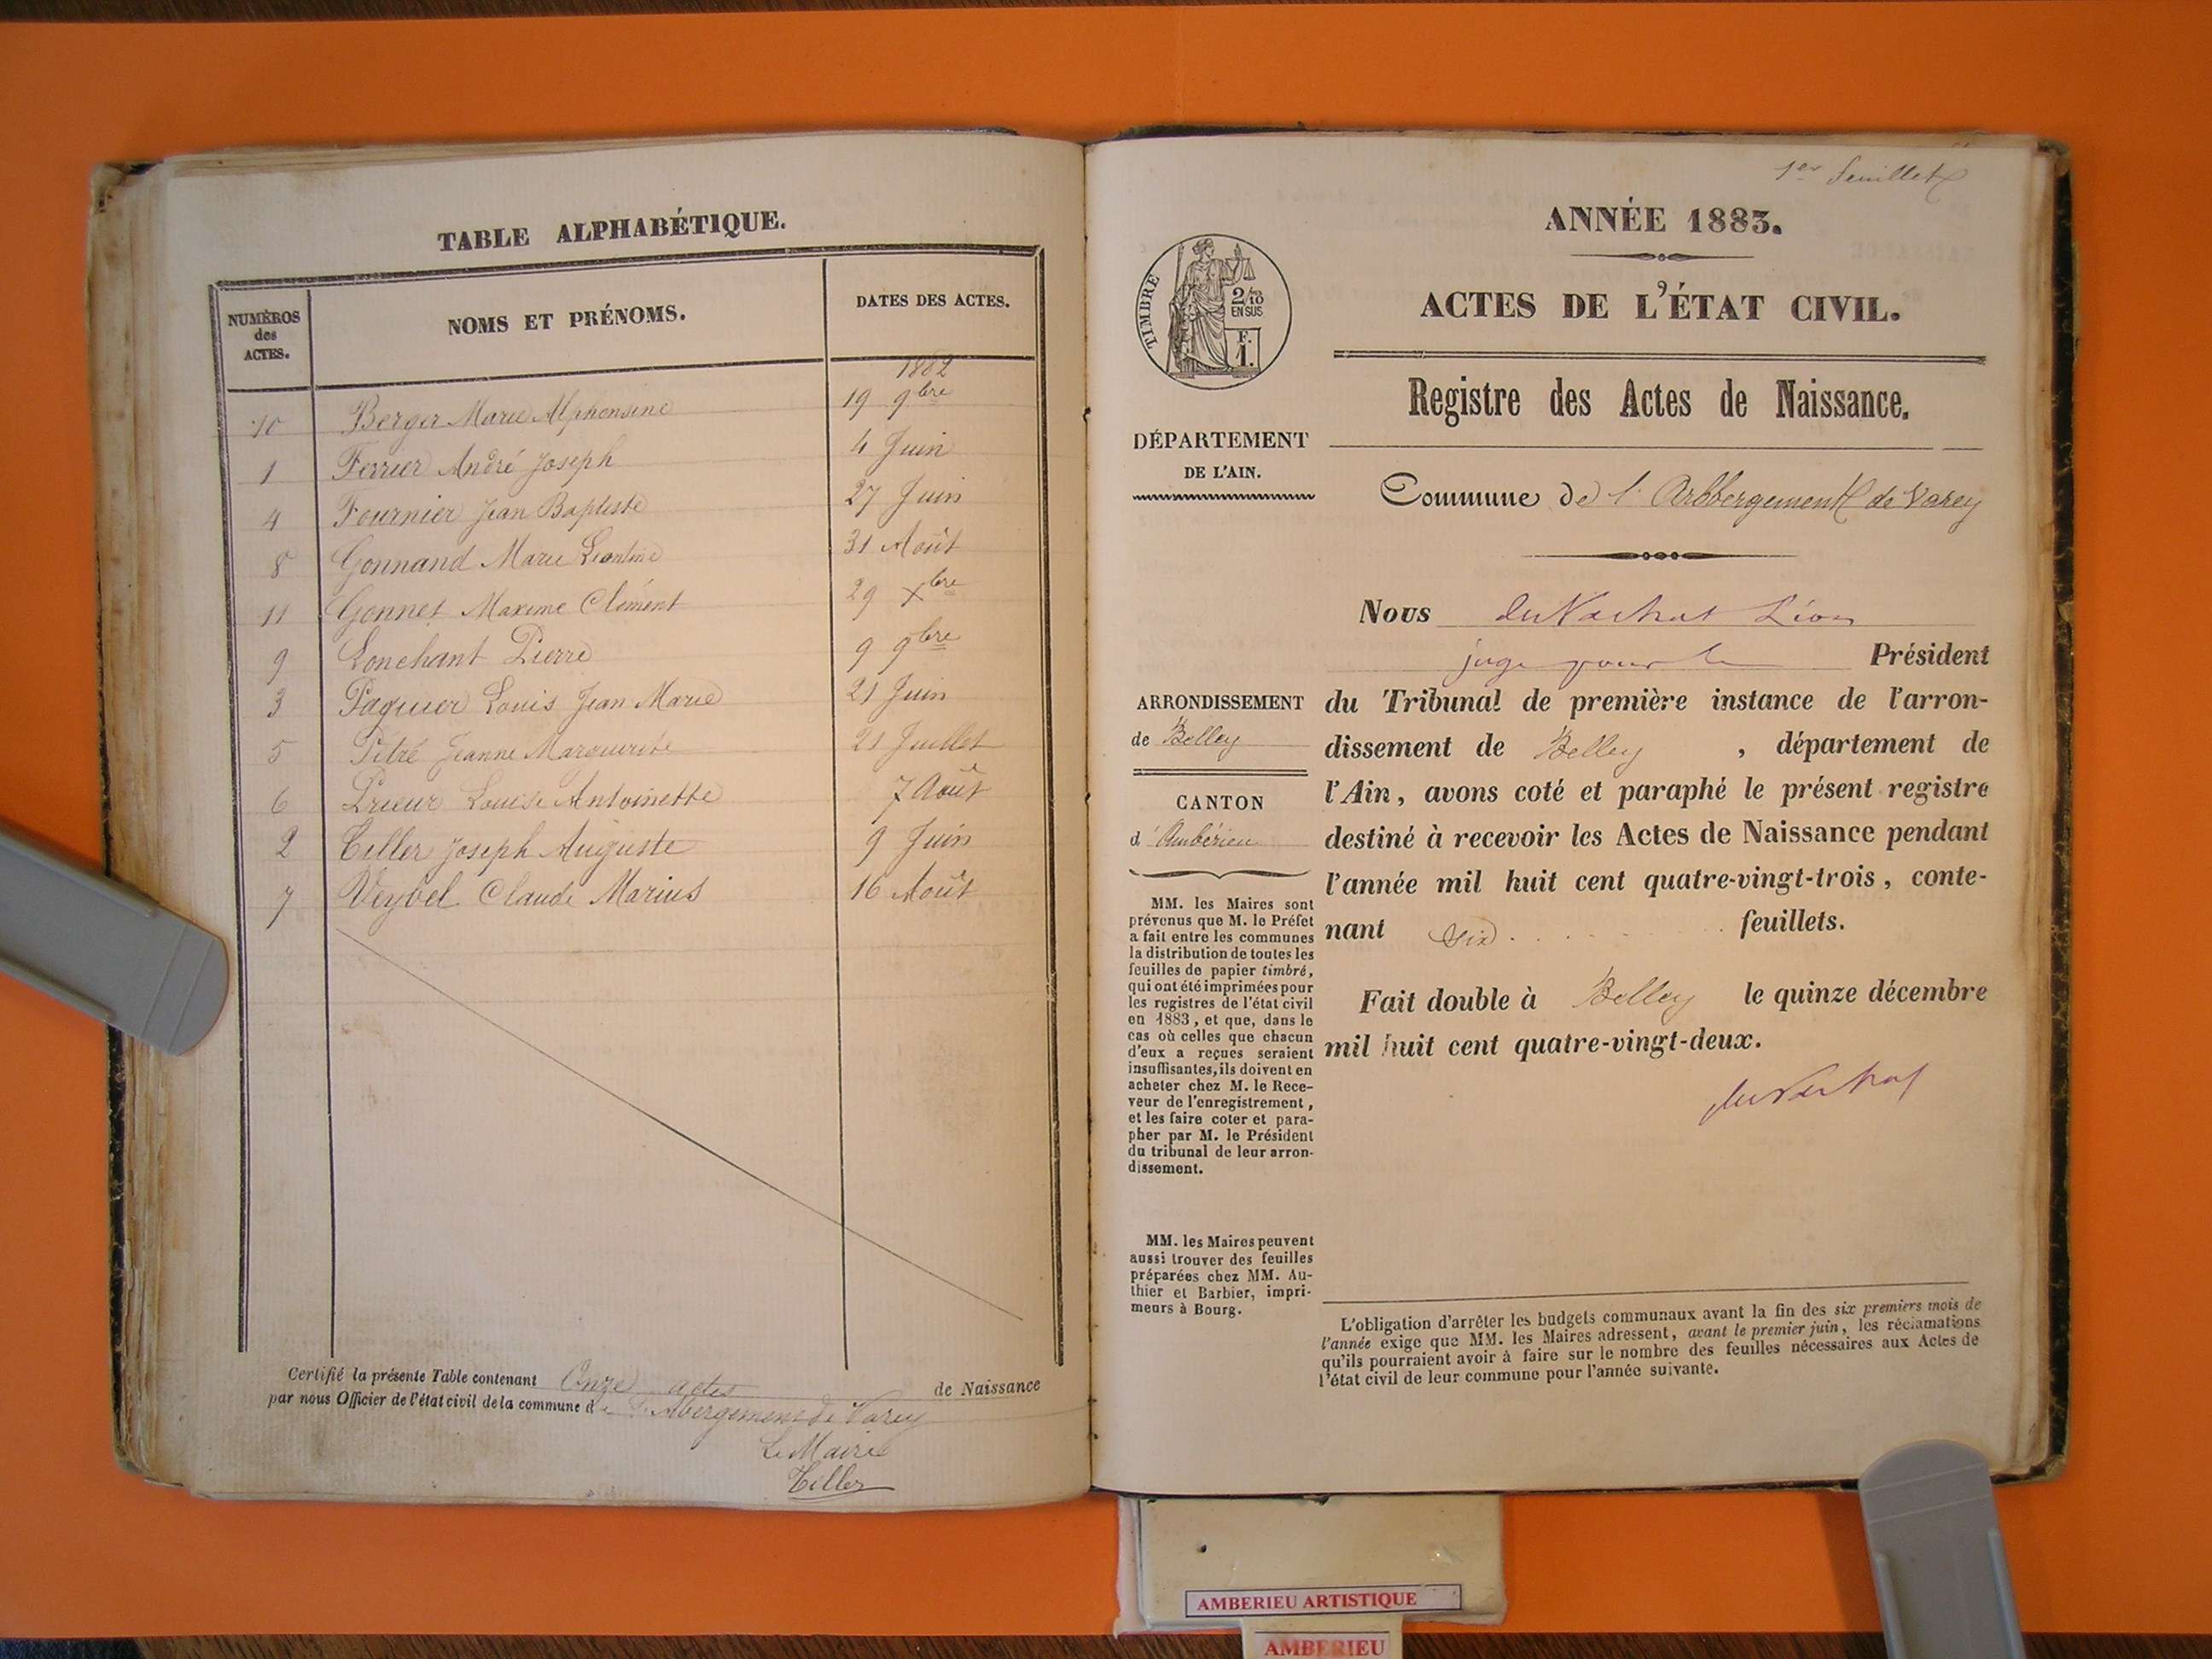 TABLE ALPHABÉTIQUE.
NUMÉROS
des
ACTES.
NOMS ET PRÉNOMS.
DATES DES ACTES.
1882
10 Berger Marie Alphonsine 19 9bre
1 Ferrier André Joseph 4 Juin
4 Fournier Jean Baptiste 27 Juin
8 Gonnand Marie Léontine 31 Août
11 Gonnet Maxime Clément 29 Xbre
9 Lonchant Pierre 9 9bre
3 Paquier Louis Jean Marie 21 Juin
5 Pitré Jeanne Marguerite 21 Juillet
6 Prieur Louise Antoinette 7 Août
2 Tiller Joseph Auguste 9 Juin
7 Veybel Claude Marius 16 Août
Certifié la présente Table contenant Onze actes de Naissance
par nous Officier de l'état civil de la commune de l'Abergement de Varey
Le Maire
Tiller
1er feuillet
ANNÉE 1883.
ACTES DE L'ÉTAT CIVIL.
Registre des Actes de Naissance.
TIMBRE
2/10
EN SUS
F.
1.
DÉPARTEMENT
DE L'AIN.
Commune de l'Abbergement de Varey
Nous du Vachat Léon
juge pour le Président
ARRONDISSEMENT
de Belley
CANTON
d'Ambérieu
du Tribunal de première instance de l'arron-
dissement de Belley, département de
l'Ain, avons coté et paraphé le présent registre
destiné à recevoir les Actes de Naissance pendant
l'année mil huit cent quatre-vingt-trois, conte-
nant six feuillets.
Fait double à Belley le quinze décembre
mil huit cent quatre-vingt-deux.
du Vachat
MM. les Maires sont
prévenus que M. le Préfet
a fait entre les communes
la distribution de toutes les
feuilles de papier timbré,
qui ont été imprimées pour
les registres de l'état civil
en 1883, et que, dans le
cas où celles que chacun
d'eux a reçues seraient
insuffisantes, ils doivent en
acheter chez M. le Rece-
veur de l'enregistrement,
et les faire coter et para-
pher par M. le Président
du tribunal de leur arron-
dissement.
MM. les Maires peuvent
aussi trouver des feuilles
préparées chez MM. Au-
thier et Barbier, impri-
meurs à Bourg.
L'obligation d'arrêter les budgets communaux avant la fin des six premiers mois de
l'année exige que MM. les Maires adressent, avant le premier juin, les réclamations
qu'ils pourraient avoir à faire sur le nombre des feuilles nécessaires aux Actes de
l'état civil de leur commune pour l'année suivante.
AMBERIEU ARTISTIQUE
AMBERIEU